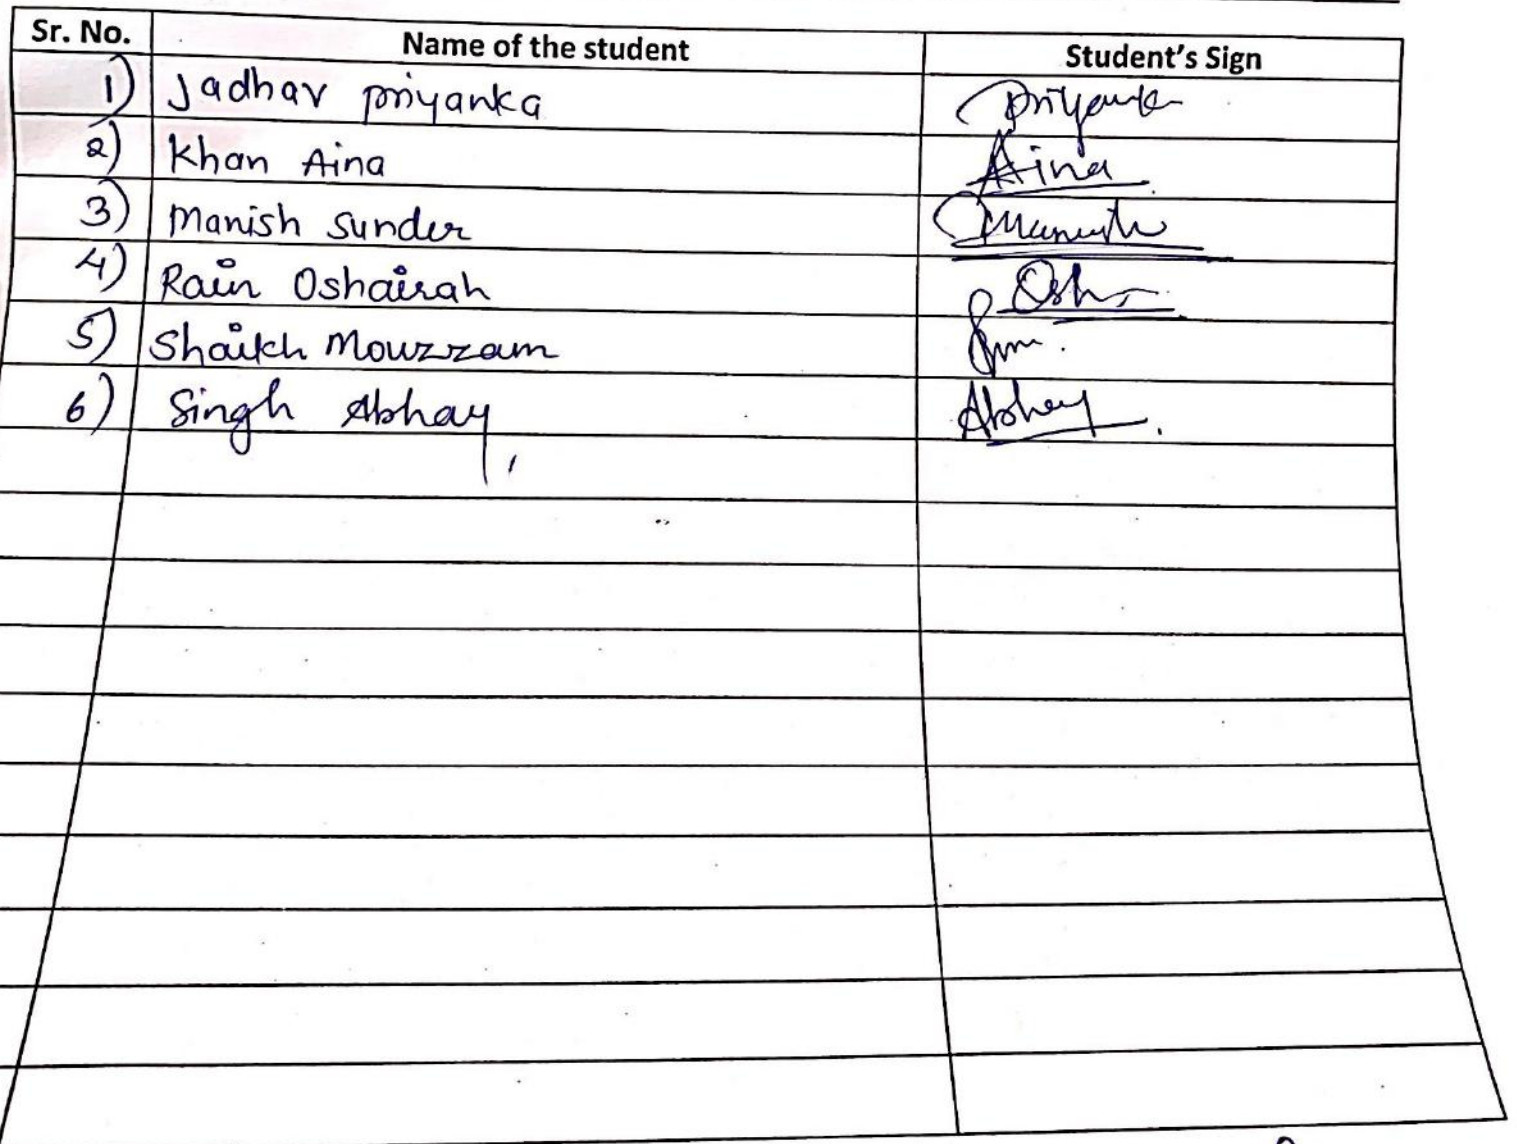 Sr. No. Name of the student Student's Sign
1) Jadhav priyanka Priyanka
2) Khan Aina Aina
3) Manish Sunder Manish
4) Rain Oshairah
5) Shaikh Mouzzam
6) Singh Abhay Abhay